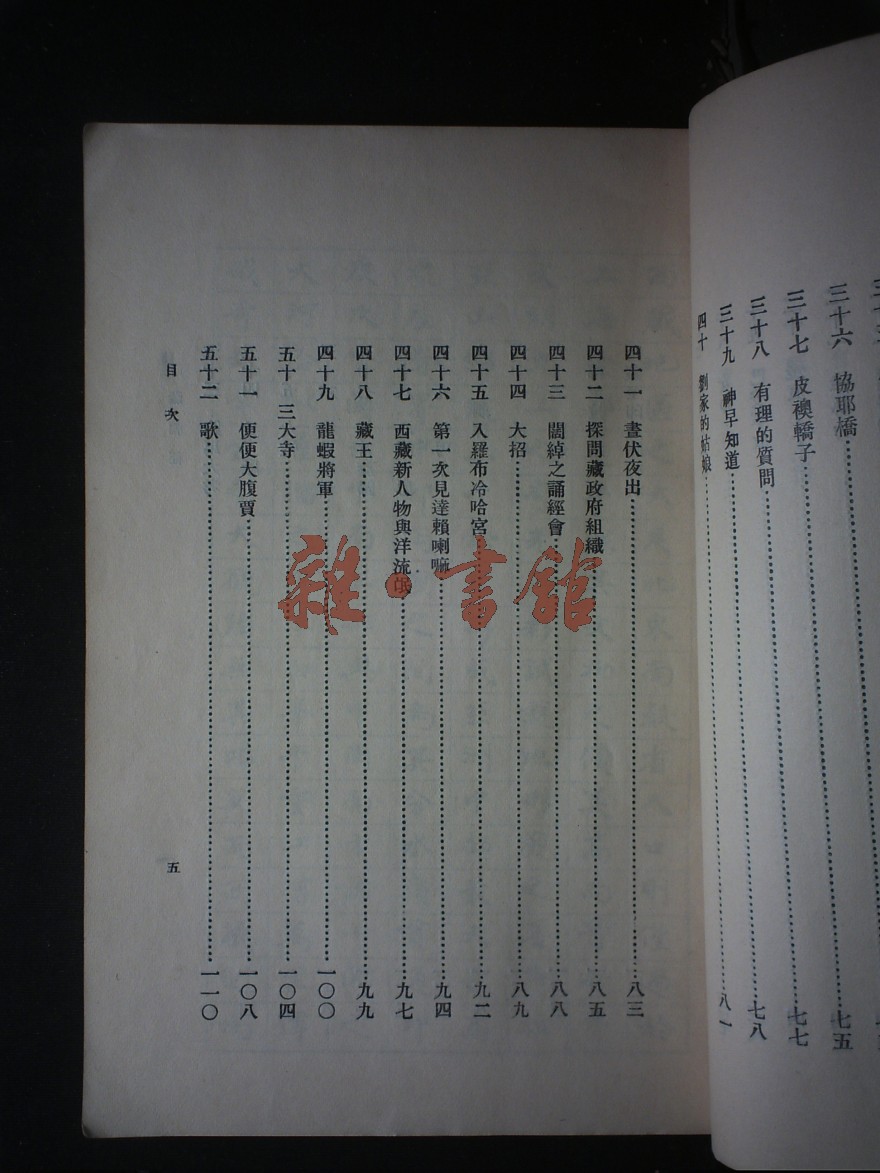 三十六 協耶橋……七五
三十七 皮襖轎子……七七
三十八 有理的質問……七八
三十九 神早知道……八一
四十 劉家的姑娘……
四十一 晝伏夜出……八三
四十二 探問藏政府組織……八五
四十三 闊綽之誦經會……八八
四十四 大招……八九
四十五 入羅布冷哈宮……九二
四十六 第一次見達賴喇嘛……九四
四十七 西藏新人物與洋流氓……九七
四十八 藏王……九九
四十九 龍蝦將軍……一〇〇
五十 三大寺……一〇四
五十一 便便大腹賈……一〇八
五十二 歌……一一〇
目次 五
雜·書館